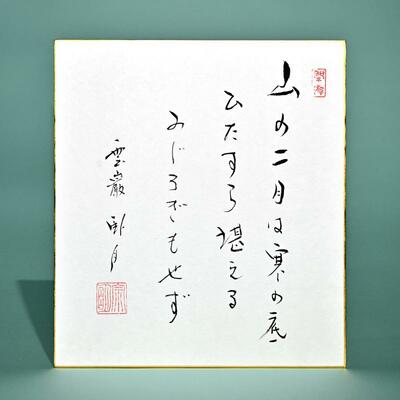 山の二月は寒の底
ひたすら堪える
みじろぎもせず
雲巌 卧月